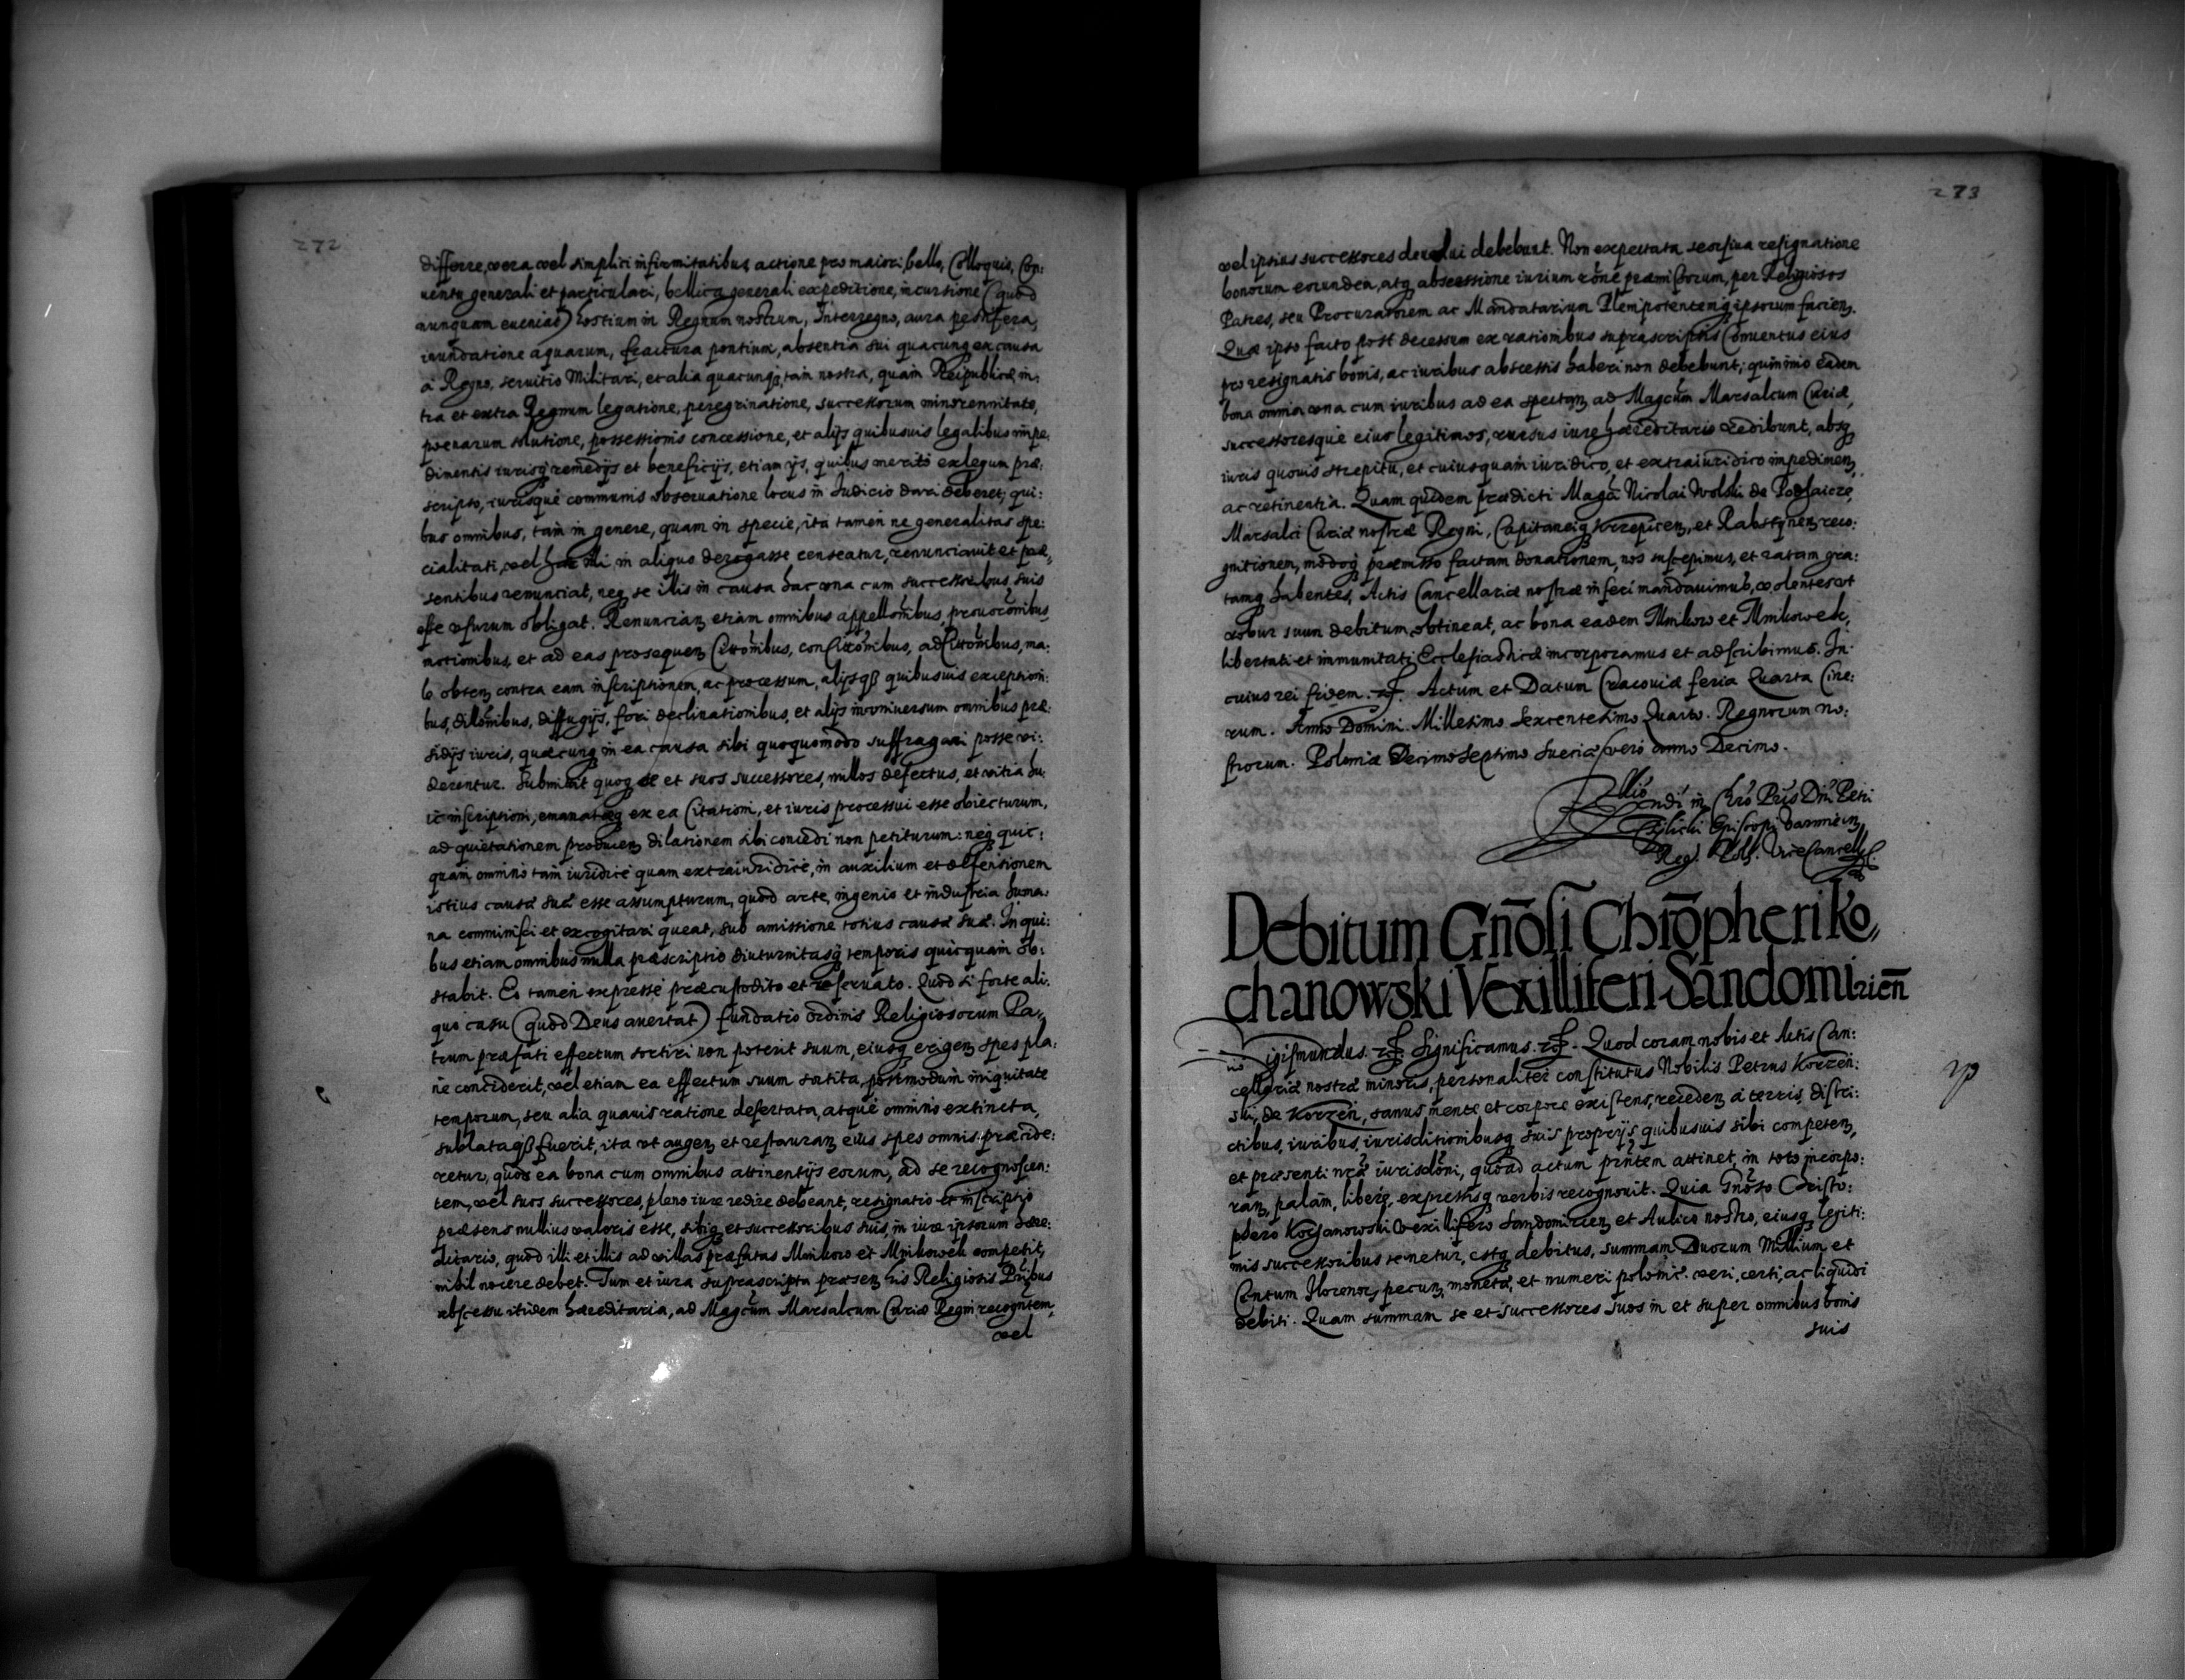 272
differre, vera vel simplici infirmitatibus, actione pro maiori, bello, Colloquijs, Con:
uentu generali et particulari, bellica generali expeditione, incursione (quod
nunquam eueniat) hostium in Regnum nostrum, Interregno, aura pestifera,
inundatione aquarum, fractura pontium, absentia sui quacunq ex causa
a Regno, seruitio Militari, et alia quacunq, tam nostra, quam Reipublicæ in:
tra et extra Regnum legatione, peregrinatione, successorum minorennitate,
poenarum solutione, possessionis concessione, et alijs quibusuis legalibus impe:
dimentis iurisq remedijs et beneficijs, etiam ijs, quibus merito ex legum præ:
scripto, iurisque communis obseruatione locus in Judicio dari deberet; qui:
bus omnibus, tam in genere, quam in specie, ita tamen ne generalitas spe:
cialitati, vel hæc illi in aliquo derogasse censeatur, renunciauit et præ:
sentibus renunciat, neq se illis in causa hac vna cum successoribus suis
esse vsurum obligat. Renuncian etiam omnibus appellonibus, prouoconibus,
motionibus, et ad eas prosequen Citonibus, conCitonibus, adCitonibus, ma:
le obten contra eam inscriptionem, ac processum, alijsq quibusuis exception:
bus, dilonibus, diffugijs, fori declinationibus, et alijs in vniuersum omnibus præ:
sidijs iuris, quæcunq in ea causa sibi quoquomodo suffragari posse vi:
derentur. Submisit quoq se et suos successores, nullos defectus, et vitia hu:
ic inscriptioni, emanatæq ex ea Citationi, et iuris processui esse obiecturum,
ad quietationem producen dilationem sibi concedi non petiturum: neq quic:
quam omnino tam iuridicè quam extraiuridicè, in auxilium et defensionem
istius causæ suæ esse assumpturum, quod arte, ingenio et industria huma:
na comminisci et excogitari queat, sub amissione totius causæ suæ. In qui:
bus etiam omnibus nulla præscriptio diuturnitasq temporis quicquam ob:
stabit. Eo tamen expresse præcustodito et reseruato. Quod si forte ali:
quo casu (quod Deus auertat) fundatio ordinis Religiosorum Pa:
trum præfati effectum sortiri non poterit suum, eiusq erigen spes pla:
ne conciderit, vel etiam ea effectum suum sortita, postmodum iniquitate
temporum, seu alia quauis ratione desertata, atque omnino extincta,
sublataq fuerit, ita vt augen et restauran eius spes omnis præcide:
retur, quod ea bona cum omnibus attinentijs eorum, ad se recognoscen:
tem, vel suos successores, pleno iure redire debeant, resignatio et inscriptio
præsens nullius valoris esse, sibiq et successoribus suis, in iure ipsorum hære:
ditario, quod illi et illis ad villas præfatas Mnikow et Mnikowek competit,
nihil nocere debet. Tum et iura suprascripta præsen his Religiosis Pribus
abscessu itidem hæreditaria, ad Magcum Marsalcum Curiæ Regni recogntem,
vel
273
vel ipsius successores deuolui debebunt. Non expectata seorsiua resignatione
bonorum eorunden, atq abscessione iurium rone præmissorum, per Religiosos
Patres, seu Procuratorem ac Mandatarium Plenipotentemq ipsorum facien.
Quæ ipso facto post decessum ex rationibus suprascriptis Conuentus eius
pro resignatis bonis, ac iuribus abscessis haberi non debebunt; quinimo eadem
bona omnia vna cum iuribus ad ea spectan ad Magcum Marsalcum Curiæ,
successoresque eius legitimos, rursus iure hæreditario redibunt, absq
iuris quouis strepitu, et cuiusquam iuridico, et extraiuridico impedimen,
ac retinentia. Quam quidem prædicti Magci Nicolai Wolski de Podhaice,
Marsalci Curiæ nostræ Regni, Capitaneiq Krzepicen, et Rabstynen reco:
gnitionem, modoq præmisso factam donationem, nos suscepimus, et ratam gra:
tamq habentes, Actis Cancellariæ nostræ inseri mandauimus, volentes vt
robur suum debitum obtineat, ac bona eadem Mnikow et Mnikowek,
libertati et immunitati Ecclesiasticæ incorporamus et adscribimus. In
cuius rei fidem. Actum et Datum Cracouiæ feria Quarta Cine:
rum. Anno Domini Millesimo Sexcentesimo Quarto. Regnorum no:
strorum. Poloniæ Decimo Septimo Sueciæ vero anno Decimo.
Rndi in Chro Pris Dni Petri
Tylicki Episcopi Varmien
Reg. Pol. ViceCancell
Debitum Gnosi Chropheri Ko,,
chanowski Vexilliferi Sandomirien
igismundus. Significamus. Quod coram nobis et Actis Can:
cellariæ nostræ minoris, personaliter constitutus Nobilis Petrus Korzen:
ski, de Korzen, sanus mente et corpore existens, receden a terris, distri:
ctibus, iuribus, iurisditionibusq suis proprijs quibusuis sibi competen,
et præsenti nræ iurisdoni, quoad actum prntem attinet, in toto incorpo:
ran, palam, libere, expressisq verbis recognouit. Quia Gnoso Christo:
phero Kochanowski Vexillifero Sandomirien et Aulico nostro, eiusq legiti:
mis successoribus tenetur, estq debitus, summam Duorum Millium et
Centum florenor, pecun, monetæ, et numeri polonic. veri, certi, ac liquidi
debiti. Quam summam se et successores suos in et super omnibus bonis
suis